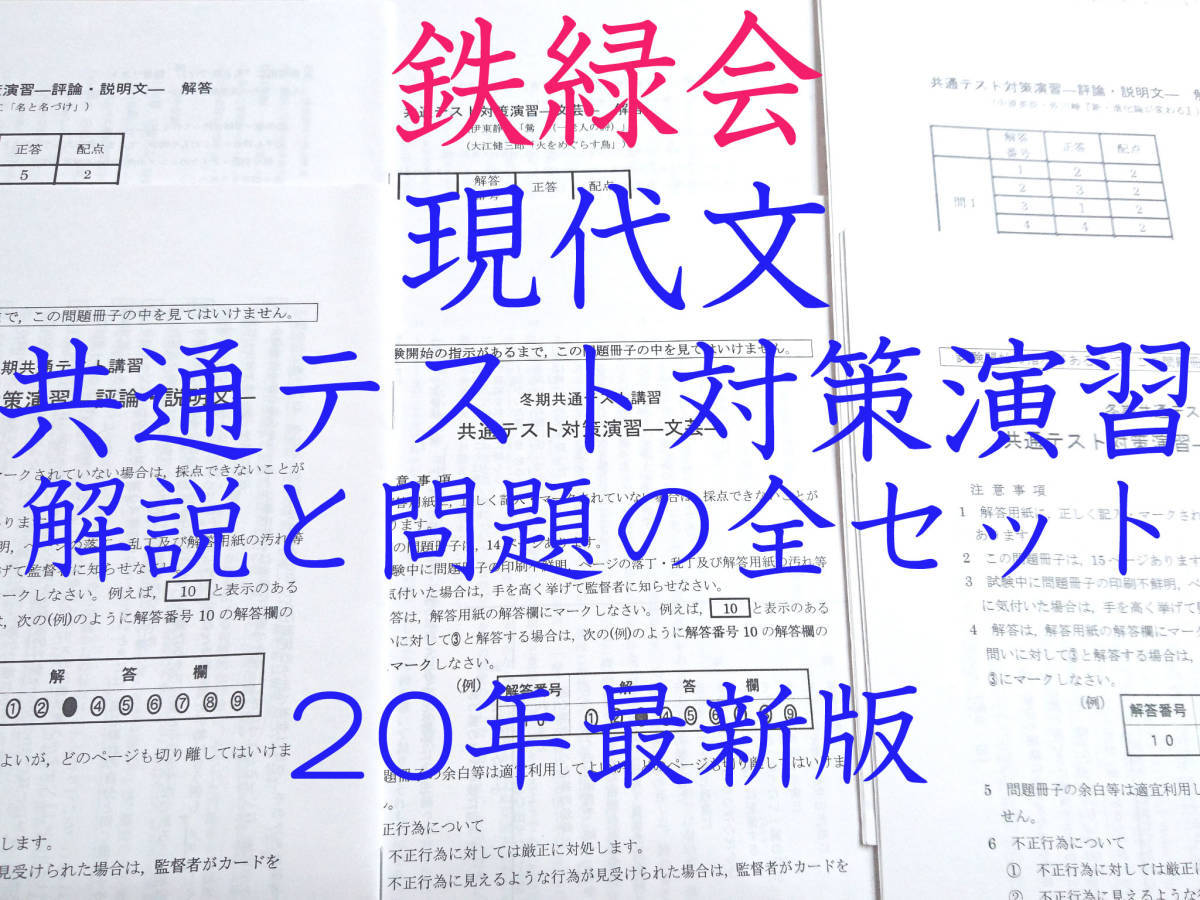 鉄緑会
現代文
共通テスト対策演習
解説と問題の全セット
20年最新版
演習―評論・説明文― 解答
「名と名づけ」）
正答 配点
5 2
で，この問題冊子の中を見てはいけません。
期共通テスト講習
策演習―評論・説明文―
マークされていない場合は，採点できないことが
ります
明，ページの落丁・乱丁及び解答用紙の汚れ等
げて監督者に知らせなさい
ークしなさい。例えば， 10 と表示のある
は，次の(例)のように解答番号10の解答欄の
解 答 欄
① ② ● ④ ⑤ ⑥ ⑦ ⑧ ⑨
よいが，どのページも切り離してはいけま
します。
見受けられた場合は，監督者がカードを
共通テスト対策演習―文芸― 解答
伊東静
（大江健三郎「火をめぐらす鳥」）
解答 正答 配点
験開始の指示があるまで，この問題冊子の中を見てはいけません。
冬期共通テスト講習
共通テスト対策演習―文芸―
意事項
正しく記入・マークされていない場合は，採点できないことが
ります。
の問題冊子は，14ページあります。
験中に問題冊子の印刷不鮮明，ページの落丁・乱丁及び解答用紙の汚れ等
気付いた場合は，手を高く挙げて監督者に知らせなさい。
答は，解答用紙の解答欄にマークしなさい。例えば， 10 と表示のある
いに対して③と解答する場合は，次の(例)のように解答番号10の解答欄の
マークしなさい。
(例) 解答番号 解 答 欄
10 ① ② ● ④ ⑤ ⑥ ⑦ ⑧ ⑨
題冊子の余白等は適宜利用してよいが，どのページも切り離してはいけま
。
正行為について
不正行為に対しては厳正に対処します。
不正行為に見えるような行為が見受けられた場合は，監督者がカードを
共通テスト対策演習―評論・説明文― 解
解答番号 正答 配点
問1 1 2 2
2 3 2
3 1 2
4 4 2
共通テスト対策演習―
注意事項
1 解答用紙に，正しく記入・マークされ
あります。
2 この問題冊子は，15ページあります
3 試験中に問題冊子の印刷不鮮明，ペ
に気付いた場合は，手を高く挙げて
4 解答は，解答用紙の解答欄にマー
問いに対して③と解答する場合は，
③にマークしなさい。
(例) 解答番号
10
5 問題冊子の余白等は適宜利用し
せん。
6 不正行為について
① 不正行為に対しては厳正に
② 不正行為に見えるような